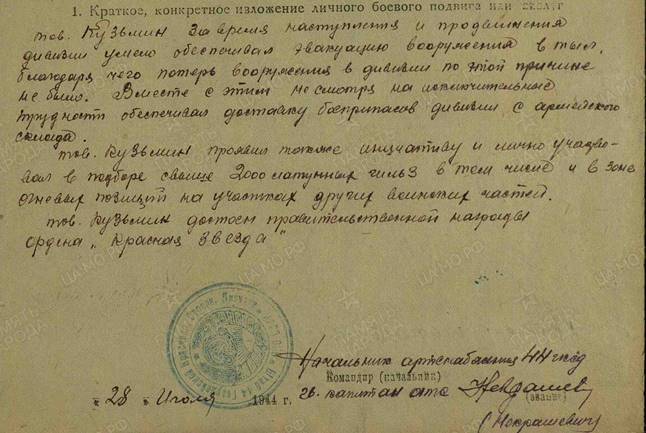 1. Краткое, конкретное изложение личного боевого подвига или заслуг
тов. Кузьмин за время наступления и продвижения
дивизии умело обеспечивал эвакуацию вооружения в тыл,
благодаря чего потерь вооружения в дивизии по этой причине
не было. Вместе с этим несмотря на исключительные
трудности обеспечивал доставку боеприпасов дивизии с армейского
склада.
тов. Кузьмин проявил также инициативу и лично участво-
вал в подборе свыше 2000 латунных гильз в том числе и в зоне
огневых позиций на участках других воинских частей.
тов. Кузьмин достоин правительственной награды
ордена „Красная Звезда“
Начальник артснабжения 44
Командир (начальник)
гв. капитан
(звание)
(Некрашевич)
„28 „ Июля 1944 г.